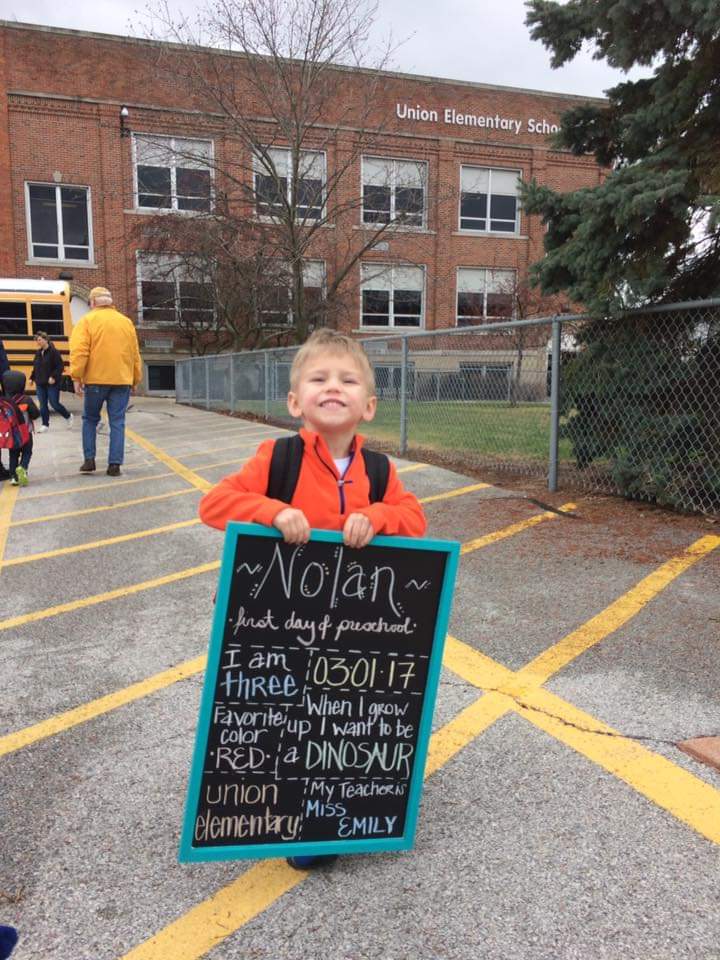 Union Elementary Schoo
~Nolan~
·first day of preschool·
I am
three
03·01·17
Favorite
color
·RED·
When I grow
up I want to be
a DINOSAUR
union
elementary
My Teacher is
MISS
EMILY